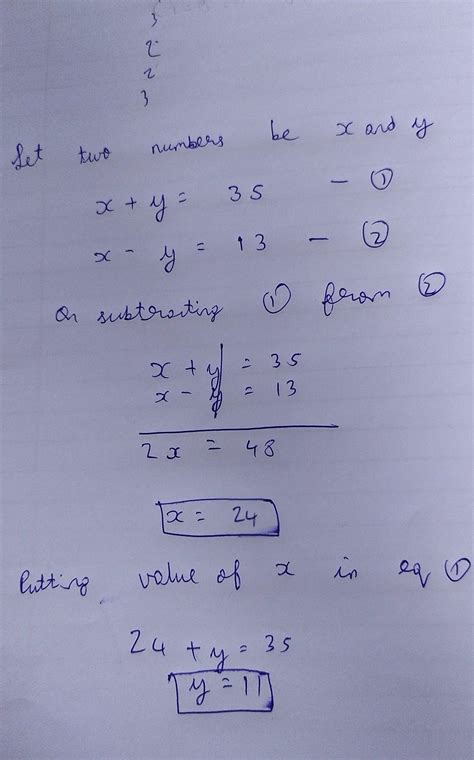 3
2
2
3
Let two numbers be x and y
x + y = 35 — ①
x - y = 13 — ②
On subtracting ① from ②
x + y = 35
x - y = 13
2x = 48
x = 24
Putting value of x in eq ①
24 + y = 35
y = 11